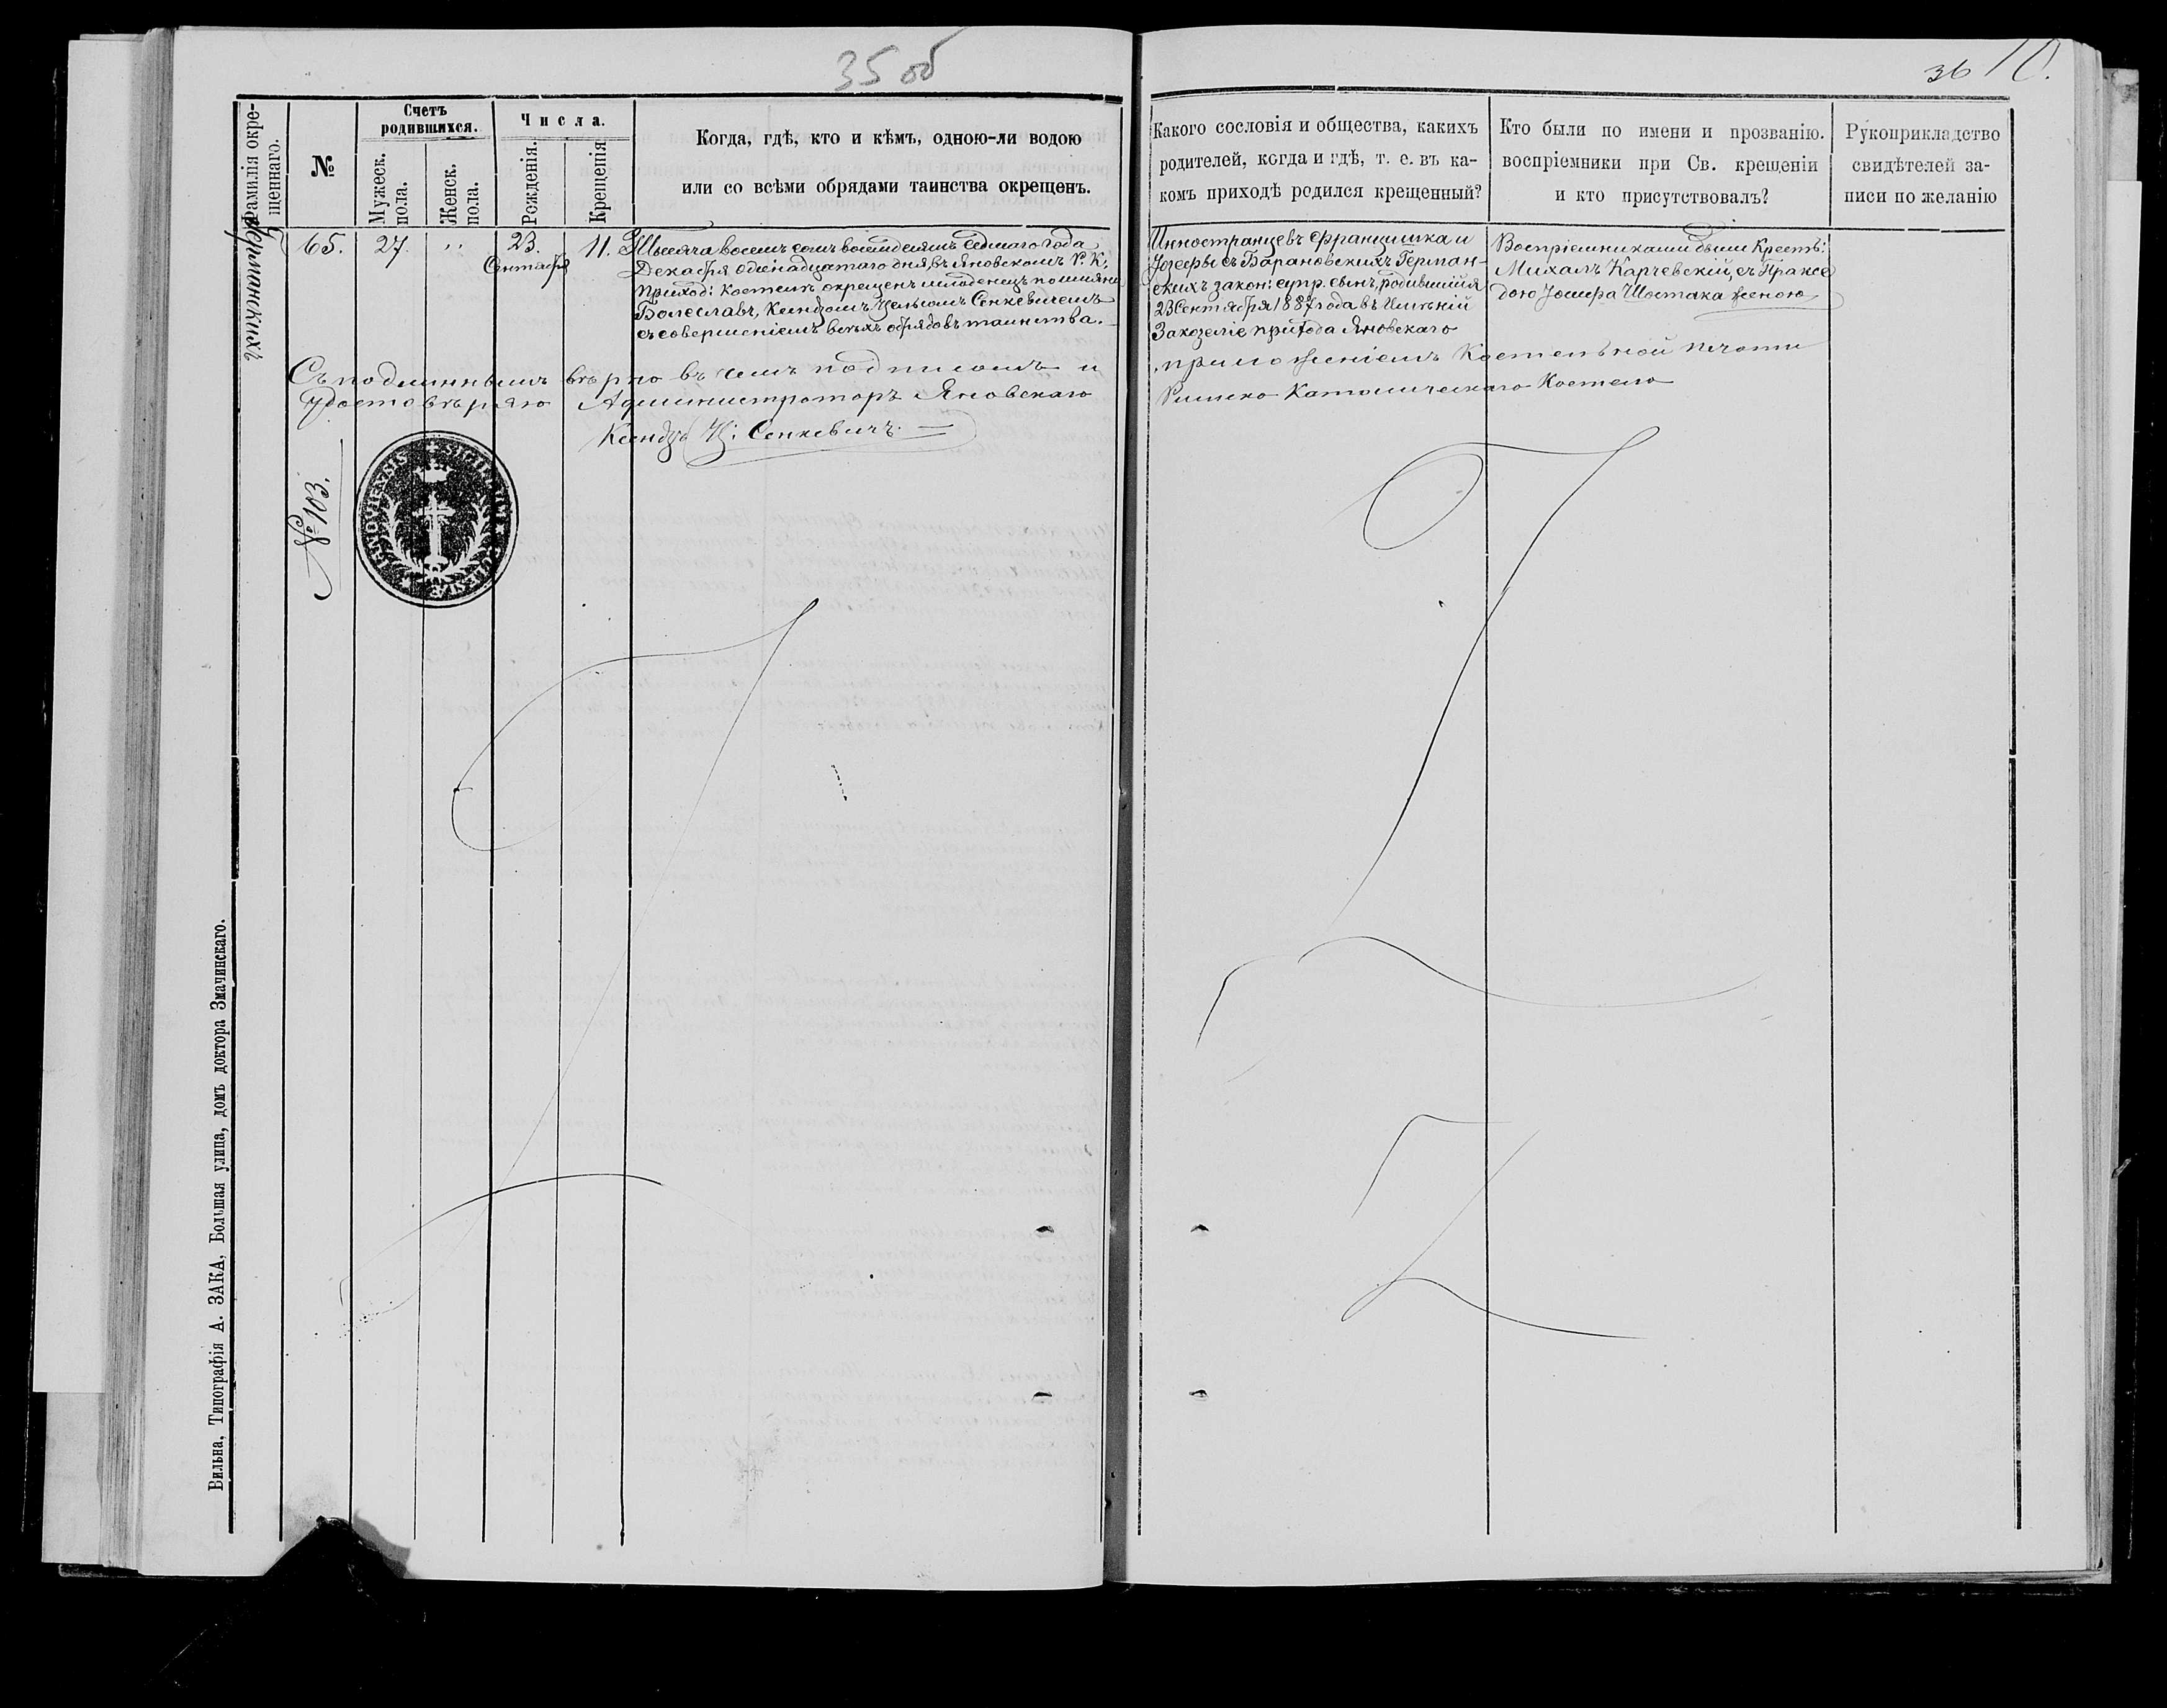 35 об
36
10.
Фамилія окре-
щеннаго.
№
Счетъ
родившихся.
Мужеск.
пола.
Женск.
пола.
Числа.
Рожденія.
Крещенія
Когда, гдѣ, кто и кѣмъ, одною-ли водою
или со всѣми обрядами таинства окрещенъ.
Какого сословія и общества, какихъ
родителей, когда и гдѣ, т. е. въ ка-
комъ приходѣ родился крещенный?
Кто были по имени и прозванію.
воспріемники при Св. крещеніи
и кто присутствовалъ?
Рукоприкладство
свидѣтелей за-
писи по желанію
Германскихъ
65.
27.
23.
Сентября
11.
Тысяча восемьсотъ восемьдесятъ седмаго года
Декабря одинадцатаго дня въ Яновскомъ Р. К.
Приход: костелѣ окрещенъ младенецъ по имяни
Болеславъ, Ксендзомъ Сенкевичемъ
съ совершеніемъ всѣхъ обрядовъ таинства.
Инностранцевъ Францишка и
Юзефы съ Барановскихъ Герман-
скихъ закон: супр. сынъ, родившійся
23 Сентября 1887 года въ Имѣній
Закозеліе прихода Яновскаго
Воспріемниками были Крестъ:
Михалъ Карчевскій, съ Праксе
дою Іосифа Шостака женою
Съ подлиннымъ вѣрно въ чемъ подписомъ и
приложеніемъ Костельной печати
удостовѣряю Администраторъ Яновскаго
Римско Католическаго Костела
Ксендзъ Ц: Сенкевичъ.
№ 103.
SIGILLUM
Вильна, Типографія А. ЗАКА, Большая улица, домъ доктора Змачинскаго.